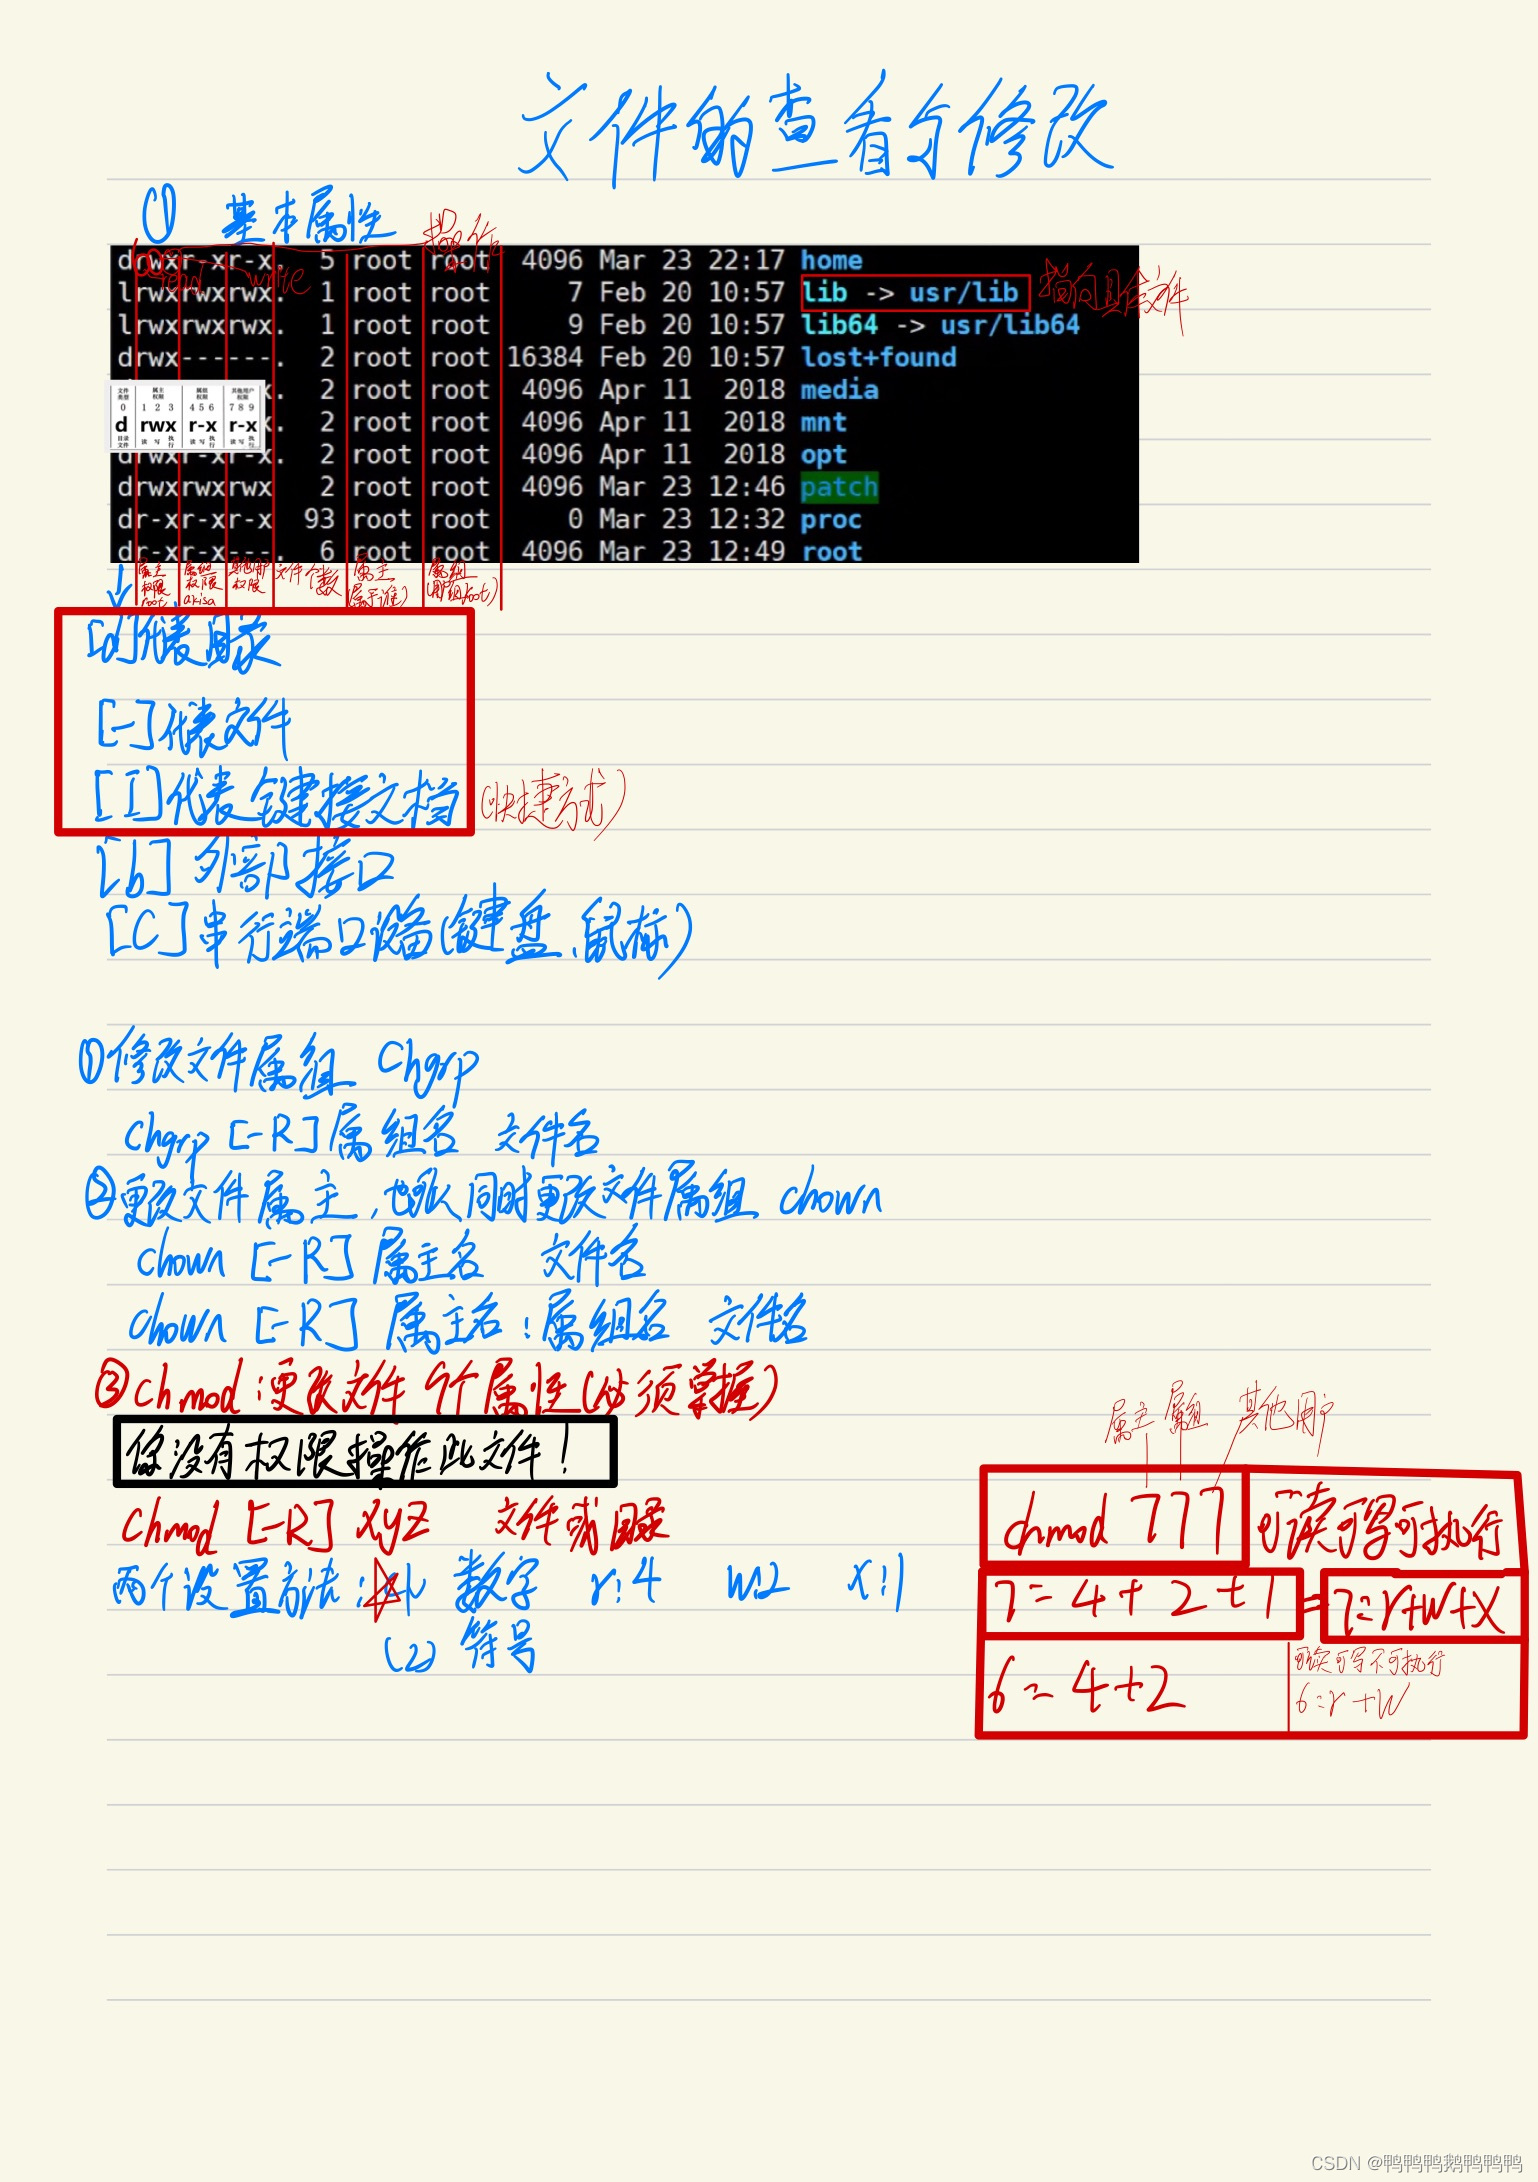 文件的查看与修改
① 基本属性 操作
read write
drwxr-xr-x. 5 root root 4096 Mar 23 22:17 home
lrwxrwxrwx. 1 root root 7 Feb 20 10:57 lib -> usr/lib 指向具体文件
lrwxrwxrwx. 1 root root 9 Feb 20 10:57 lib64 -> usr/lib64
drwx------. 2 root root 16384 Feb 20 10:57 lost+found
x. 2 root root 4096 Apr 11 2018 media
x. 2 root root 4096 Apr 11 2018 mnt
drwxr-xr-x. 2 root root 4096 Apr 11 2018 opt
drwxrwxrwx 2 root root 4096 Mar 23 12:46 patch
dr-xr-xr-x 93 root root 0 Mar 23 12:32 proc
dr-xr-x---. 6 root root 4096 Mar 23 12:49 root
文件类型 属主权限 属组权限 其他用户权限
0 1 2 3 4 5 6 7 8 9
d rwx r-x r-x
目录文件 读 写 执行 读 写 执行 读 写 执行
属主权限root 属组权限akisa 其他用户权限 文件个数 属主(属于谁) 属组(用户组root)
[d]代表目录
[-]代表文件
[I]代表键接文档 (快捷方式)
[b] 外部接口
[C]串行端口设备(键盘、鼠标)
①修改文件属组 Chgrp
Chgrp [-R]属组名 文件名
②更改文件属主,也可以同时更改文件属组 chown
chown [-R] 属主名 文件名
chown [-R] 属主名:属组名 文件名
③chmod:更改文件9个属性(必须掌握)
你没有权限操作此文件!
Chmod [-R] xyz 文件或目录
两个设置方法: 数字 r:4 w:2 x:1
(2) 符号
属主 属组 其他用户
chmod 777 可读可写可执行
7=4+2+1 = 7=r+w+x
6=4+2 可读可写不可执行
6=r+w
CSDN @鸭鸭鸭鹅鸭鸭鸭